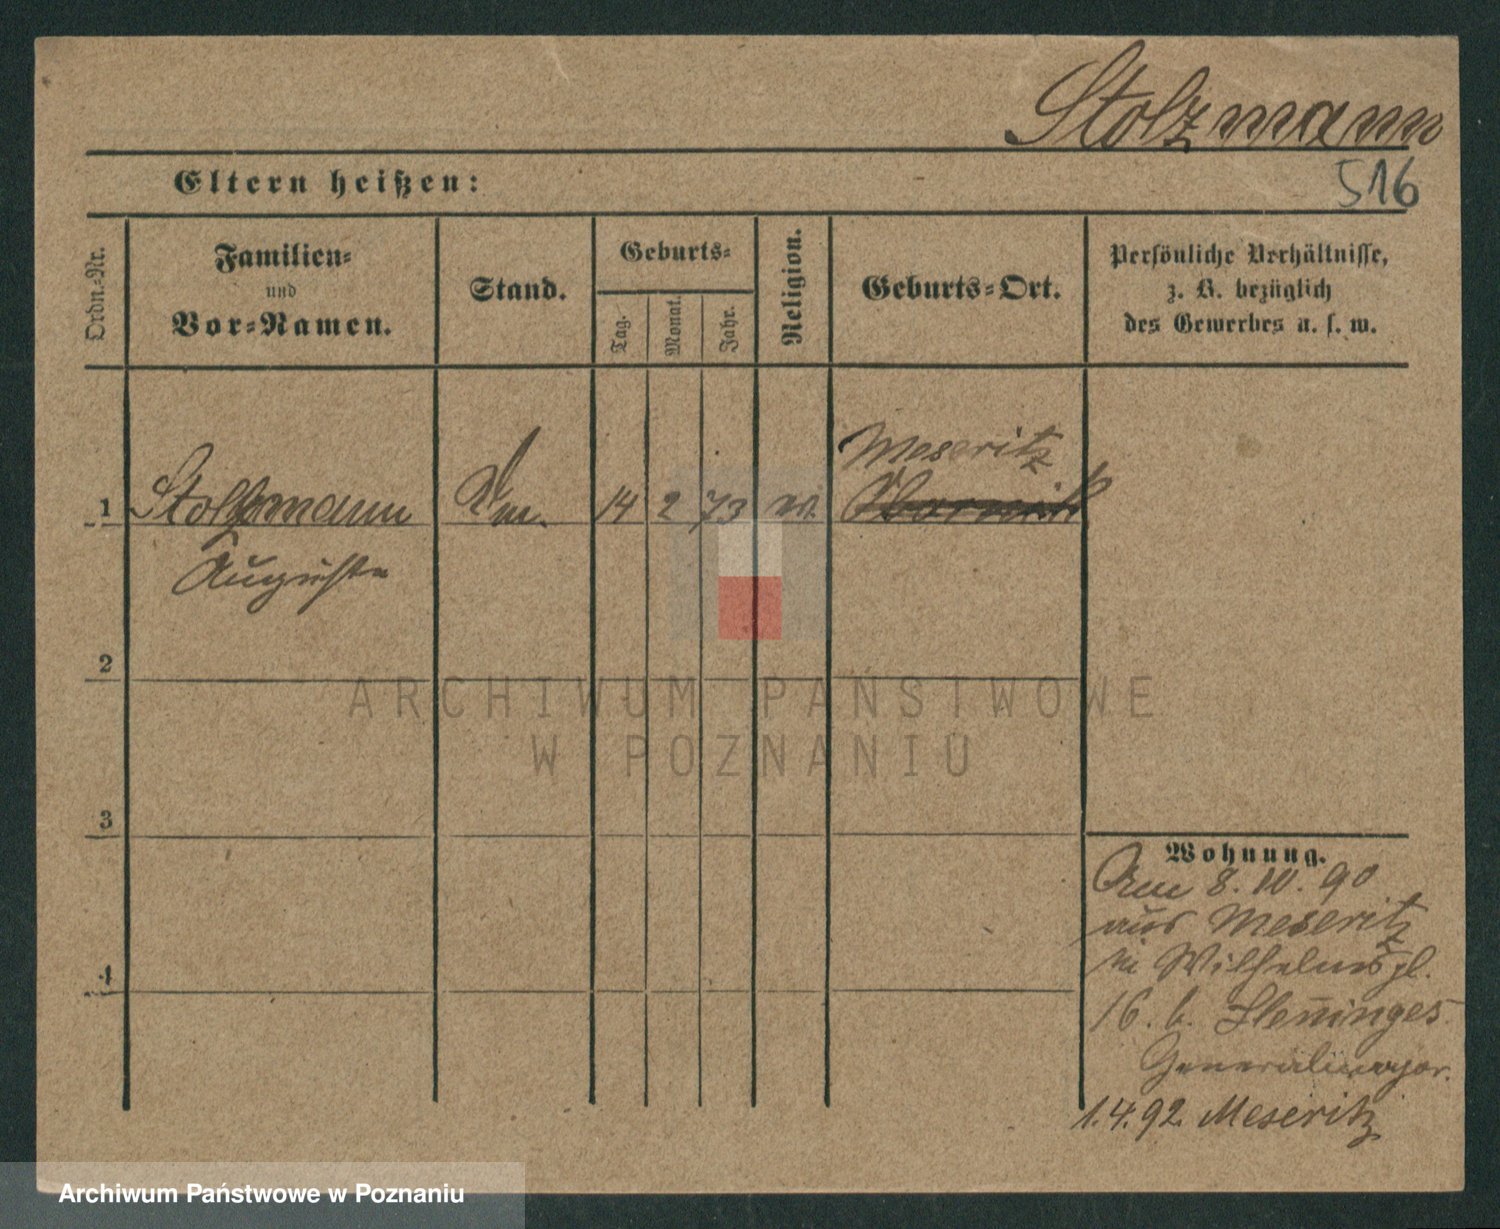 Stolzmann
516
Eltern heißen:
Ordn.-Nr.
Familien-
und
Vor-Namen.
Stand.
Geburts-
Tag.
Monat.
Jahr.
Religion.
Geburts-Ort.
Persönliche Verhältnisse,
z. B. bezüglich
des Gewerbes u. s. w.
Meseritz
1 Stolzmann 14 2 73 Obornik
Auguste
2
ARCHIWUM PAŃSTWOWE
W POZNANIU
3
4
Wohnung.
Am 8.10.90
aus Meseritz
in Wilhelmspl.
16. b.
Generalmajor.
1.4.92. Meseritz
Archiwum Państwowe w Poznaniu